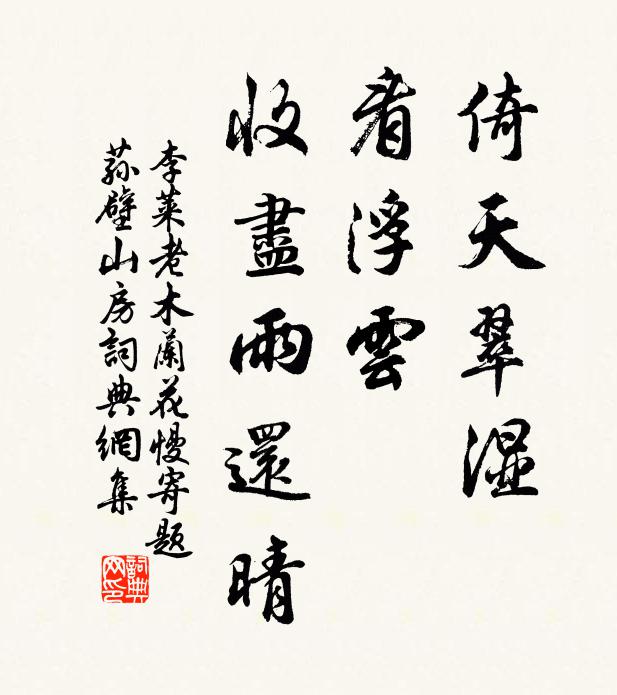 倚天翠湿
看浮雲
收盡雨還晴
李萊老木蘭花慢寄題
蓀壁山房詞典網集
詞典
网印